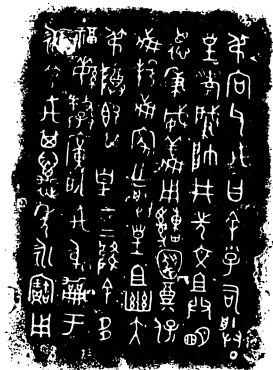 弔向父禹曰余小子司朕
皇考肇帥井先文且共明
德秉威義用䌛奠保
我邦我家乍朕皇且幽大
弔尊簋其才上降余多
福繁釐廣啟禹身于
永命禹其萬年永寶用